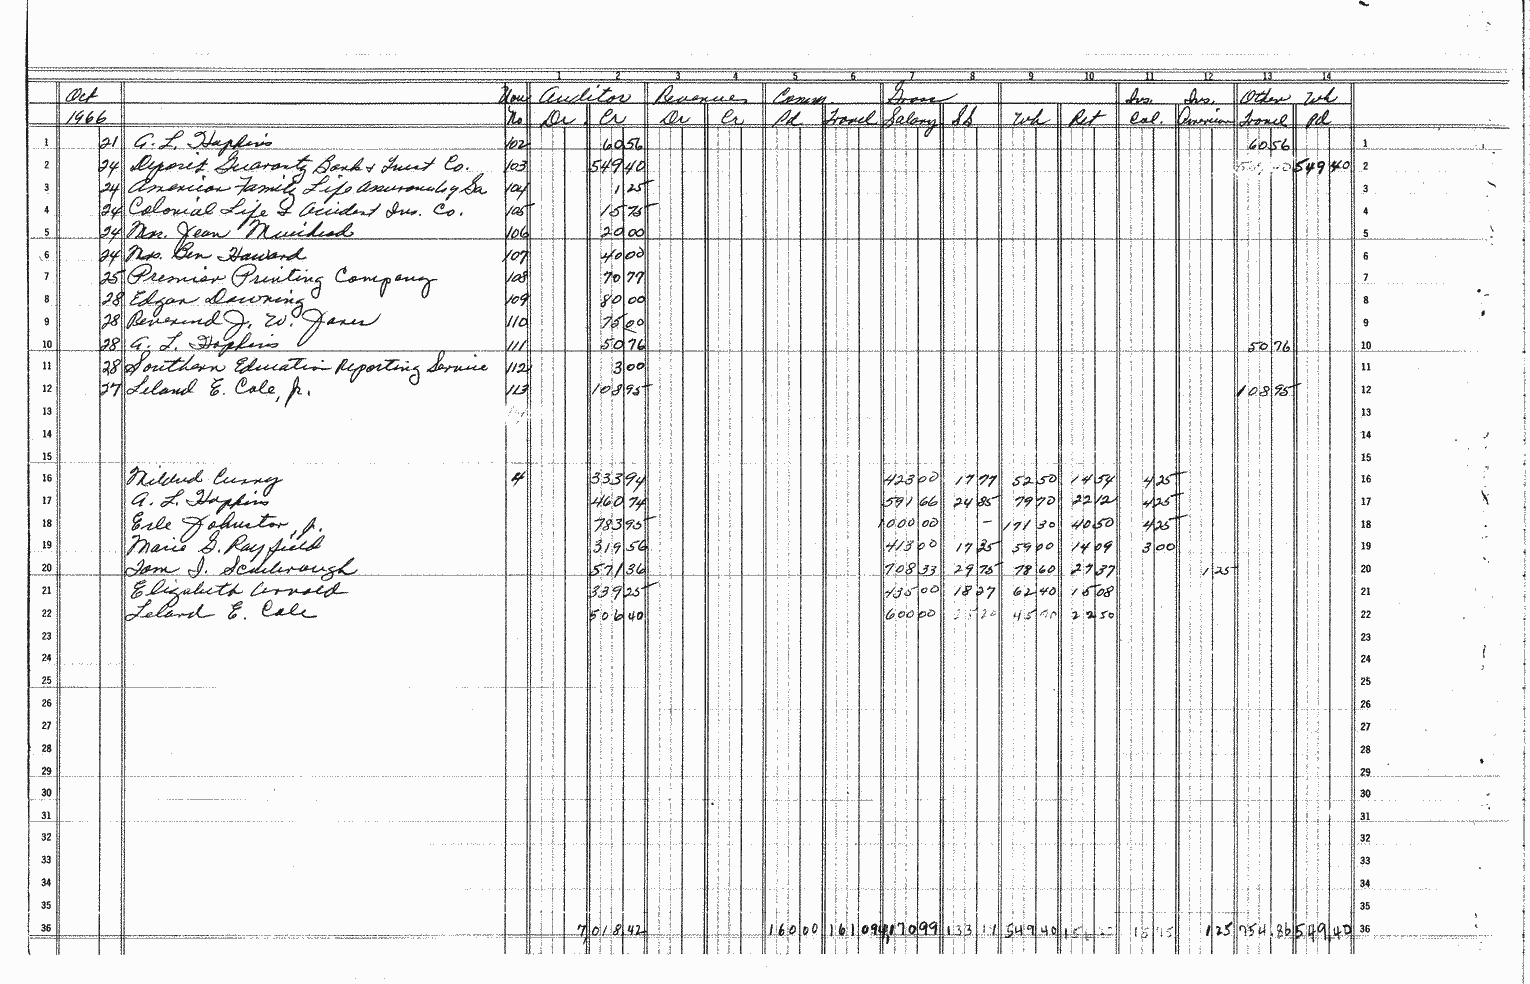 1 2 3 4 5 6 7 8 9 10 11 12 13 14
Oct Vou Auditor Revenues Comm Gross Ins. Ins. Other Wh
1966 No Dr Cr Dr Cr Pd Travel Salary SS Wh Ret Col. American Travel Pd
1 21 A. L. Hopkins 102 60 56 60 56 1
2 24 Deposit Guaranty Bank & Trust Co. 103 549 40 549 40 2
3 24 American Family Life Assurance 104 1 25 3
4 24 Colonial Life & Accident Ins. Co. 105 15 75 4
5 24 Mrs. Jean Muirhead 106 20 00 5
6 24 Mrs. Ben Howard 107 40 00 6
7 25 Premier Printing Company 108 70 77 7
8 28 Edgar Downing 109 80 00 8
9 28 Reverend J. W. Jones 110 75 00 9
10 28 A. L. Hopkins 111 50 76 50 76 10
11 28 Southern Education Reporting Service 112 3 00 11
12 27 Leland E. Cole, Jr. 113 108 95 108 95 12
13 13
14 14
15 15
16 Mildred Curry 4 333 94 423 00 17 77 52 50 14 54 4 25 16
17 A. L. Hopkins 460 74 591 66 24 85 79 70 22 12 4 25 17
18 Erle Johnston, Jr. 783 95 1000 00 – 171 30 40 50 4 25 18
19 Marie G. Rayfield 319 56 413 00 17 35 59 00 14 09 3 00 19
20 Tom I. Scarbrough 571 36 708 33 29 75 78 60 27 37 1 25 20
21 Elizabeth Arnold 339 25 435 00 18 27 62 40 15 08 21
22 Leland E. Cole 506 40 600 00 22 50 22
23 23
24 24
25 25
26 26
27 27
28 28
29 29
30 30
31 31
32 32
33 33
34 34
35 35
36 7,018 42 160 00 161 09 4,170 99 549 40 1 25 754.86 549.40 36